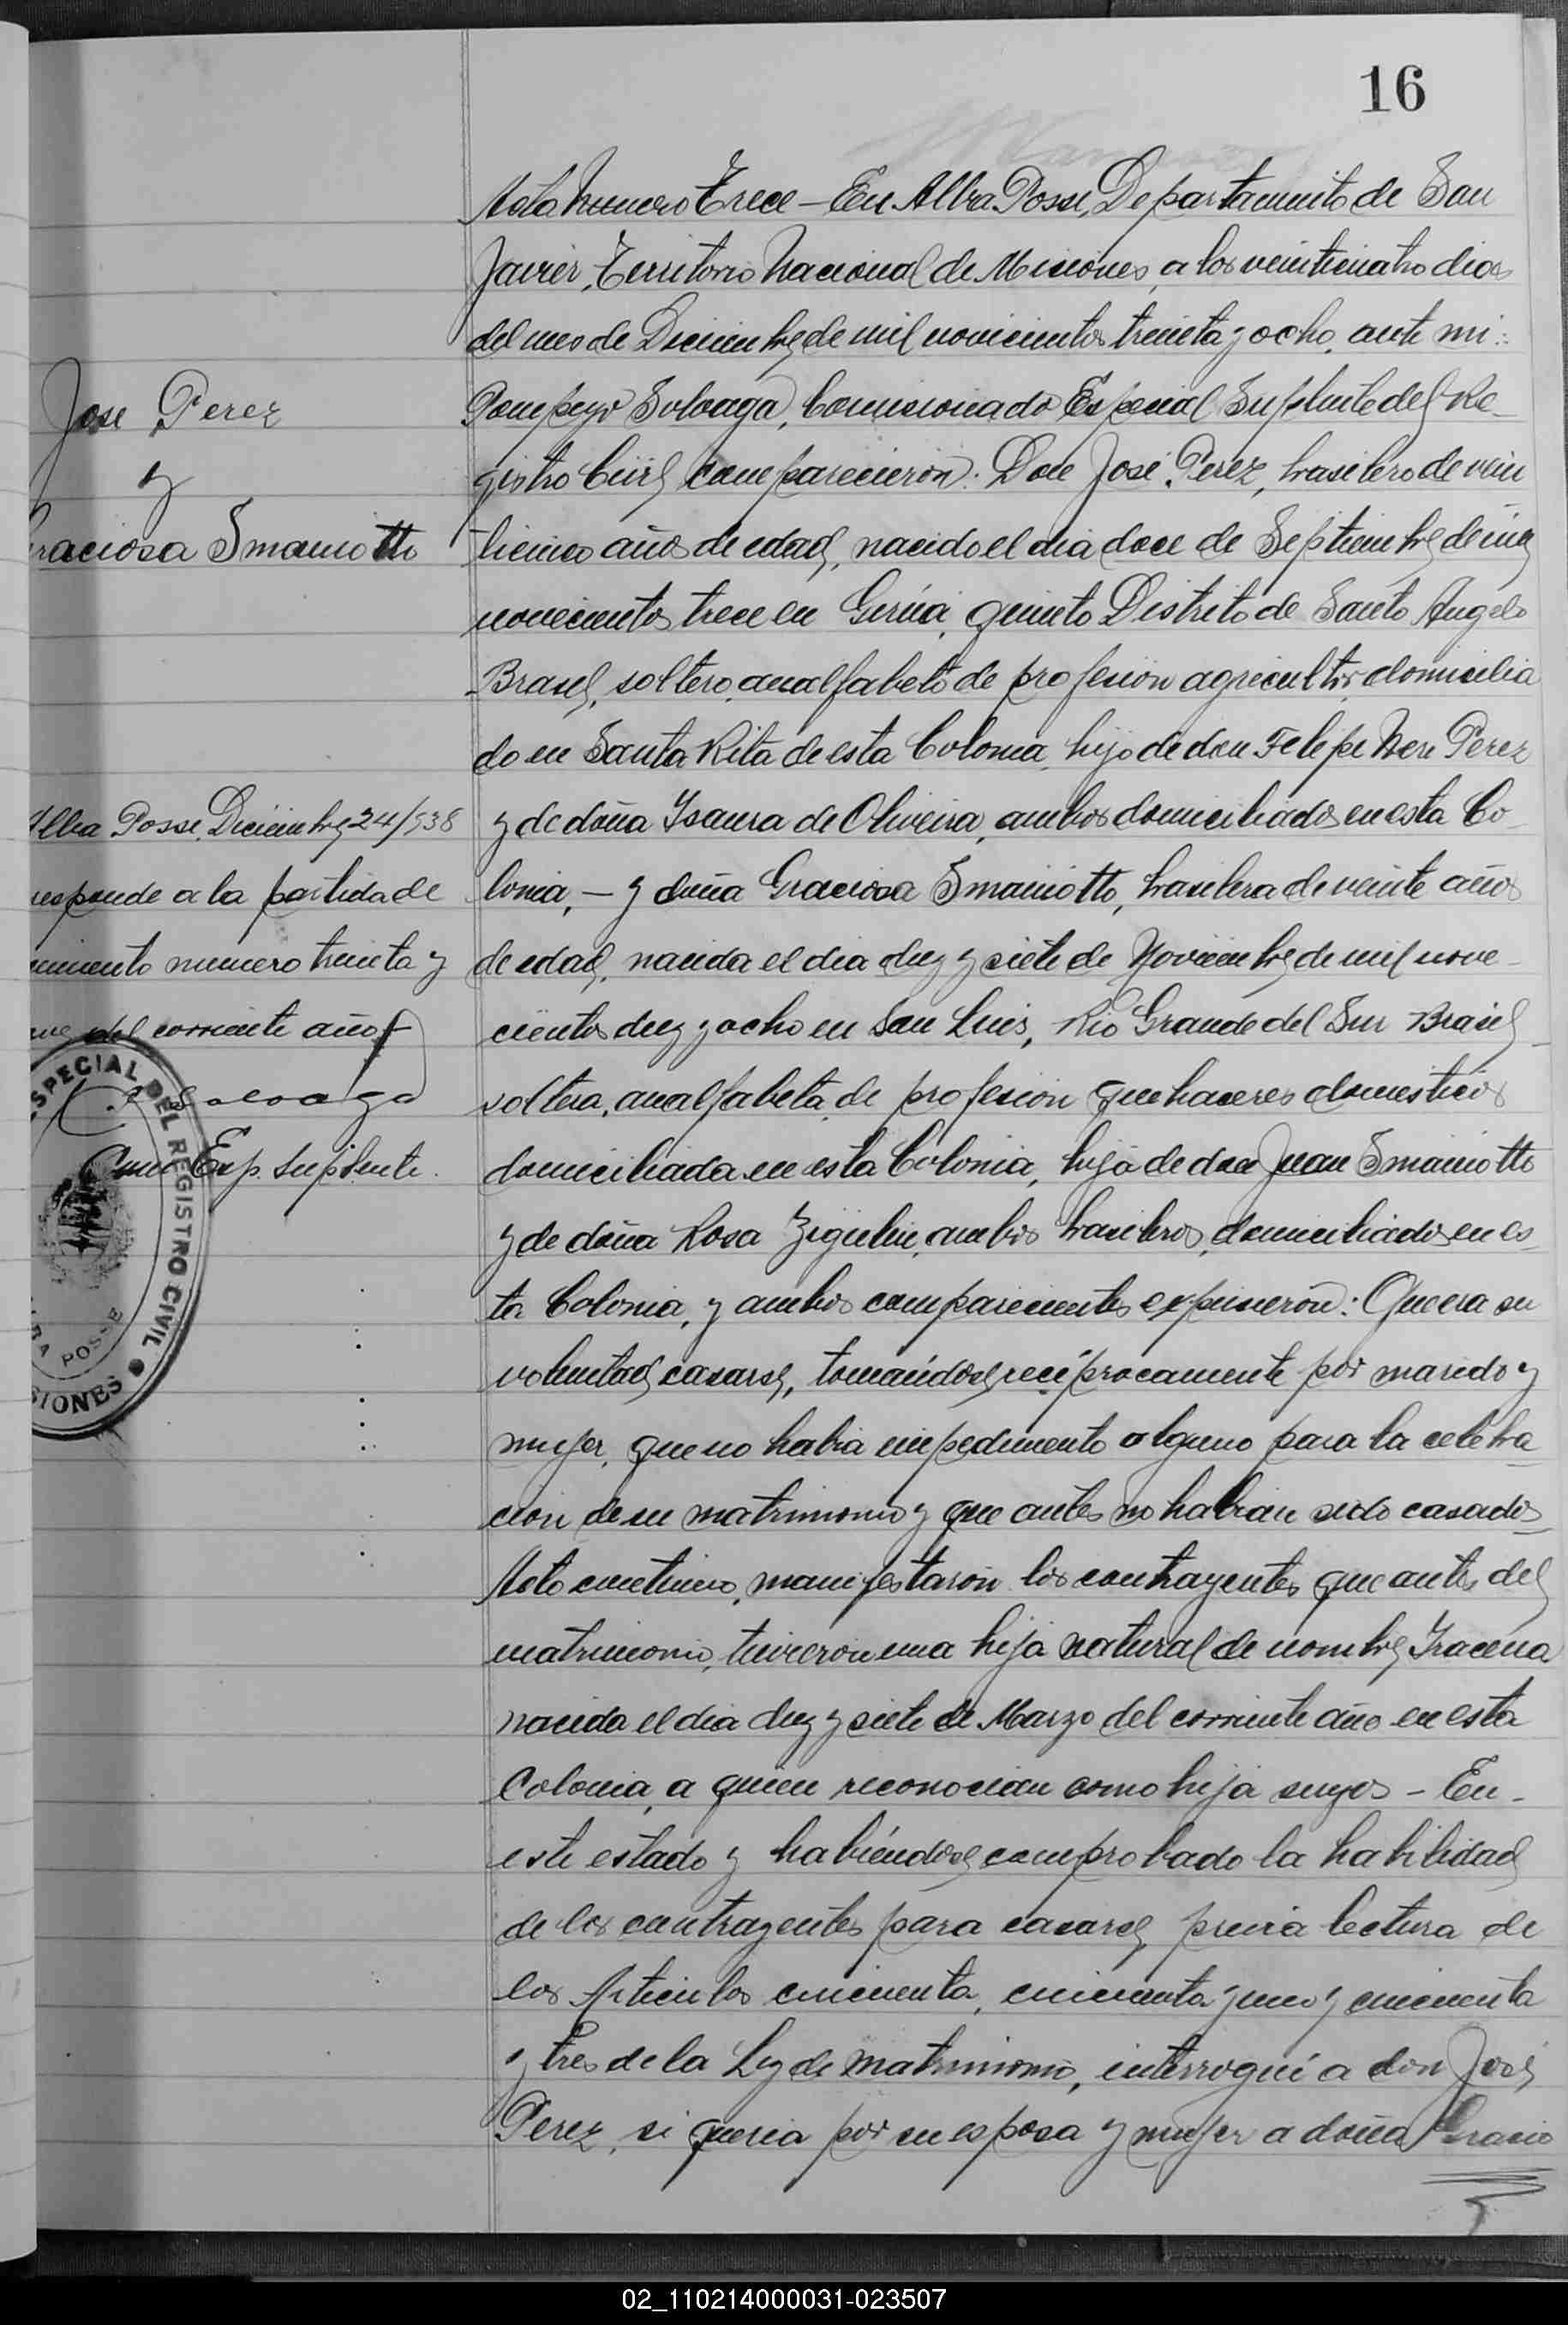 16
Jose Perez
y
Graciosa Smaniotto
Alba Posse, Diciembre 24/938
responde a la partida de
cimiento numero treinta y
ve del corriente año
P. Soloaga
Com Esp. Suplente.
ESPECIAL DEL REGISTRO CIVIL
ALBA POSSE
MISIONES
Acta Numero Trece - En Alba Posse, Departamento de San
Javier, Territorio Nacional de Misiones, a los veinticuatro dias
del mes de Diciembre de mil novicientos treinta y ocho, ante mi:
Pompeyo Soloaga, Comisionado Especial Suplente del Re-
gistro Civil comparecieron: Don José Perez, brasilero de vein
ticinco años de edad, nacido el dia doce de Septiembre de mil
novecientos trece en Girúa, quinto Distrito de Santo Angelo
Brasil, soltero, analfabeto de profesion agricultor, domicilia
do en Santa Rita de esta Colonia, hijo de don Felipe Neri Perez
y de doña Ysaura de Oliveira, ambos domiciliados en esta Co-
lonia, - y doña Graciosa Smaniotto, brasilera de veinte años
de edad, nacida el dia diez y siete de Noviembre de mil nove-
cientos diez y ocho en San Luis, Rio Grande del Sur Brasil
soltera, analfabeta, de profesion quehaceres domesticos
domiciliada en esta Colonia, hija de don Juan Smaniotto
y de doña Rosa ambos brasileros, domiciliados en es-
ta Colonia, y ambos comparecientes expusieron: Que era su
voluntad casarse, tomandose reciprocamente por marido y
mujer, que no habia impedimento alguno para la celebra-
cion de su matrimonio y que antes no habian sido casados
Acto continuo, manifestaron los contrayentes que antes del
matrimonio, tuvieron una hija natural de nombre Yracena
nacida el dia diez y siete de Marzo del corriente año en esta
Colonia, a quien reconocian como hija suyos - En-
este estado y habiéndose comprobado la habilidad
de los contrayentes para casarse, previa lectura de
los Articulos cincuenta, cincuenta y uno y cincuenta
y tres de la Ley de Matrimonio, interrogué a don José
Perez, si queria por su esposa y mujer a doña Gracio
02_110214000031-023507